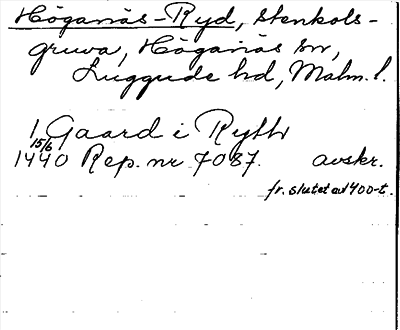 Höganäs-Ryd, stenkols-
gruva, Höganäs sn,
Luggude hd, Malm. l.
1 Gaard i Rythr
15/6
1440 Rep. nr 7087. avskr.
fr. slutet av 1400-t.